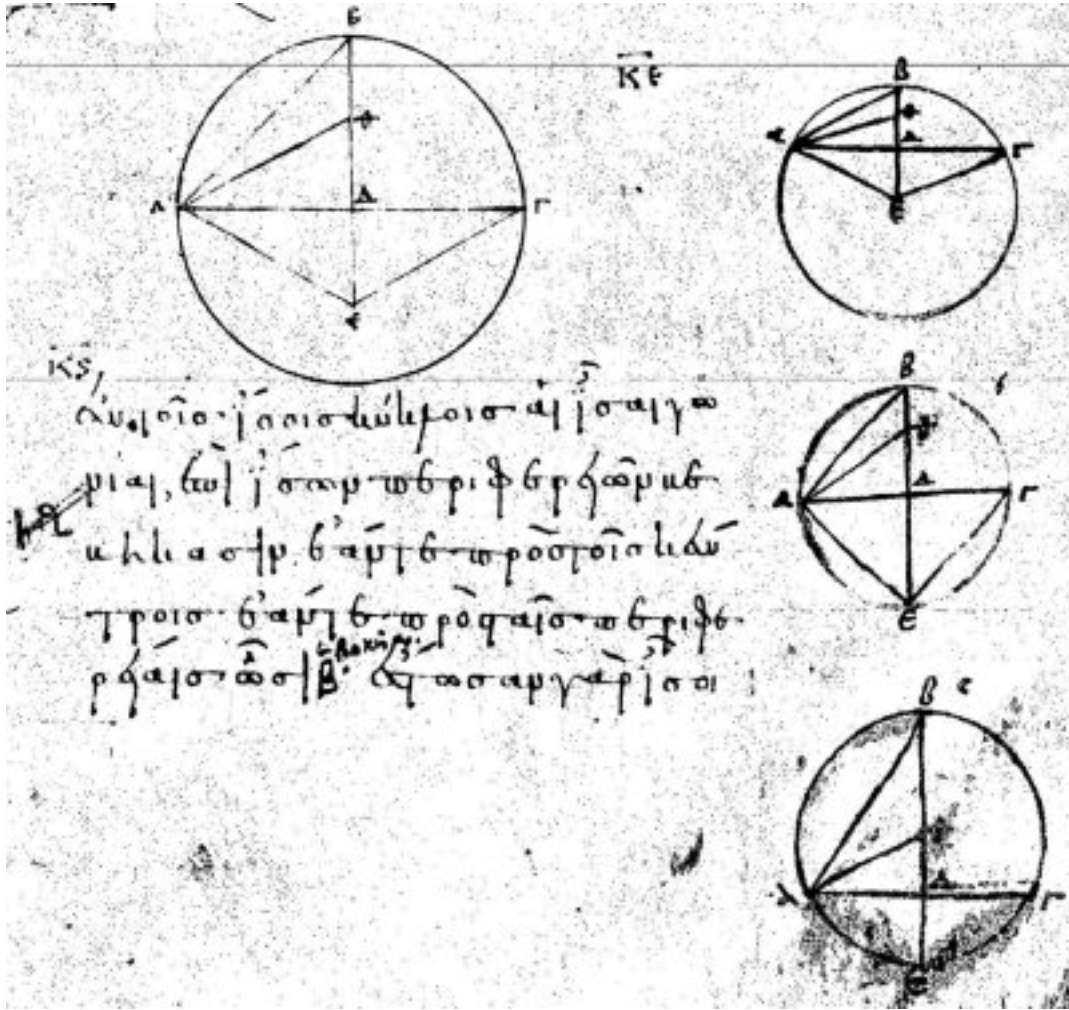 Β
Φ
Α Δ Γ
Ε
ΚΕ
Β
Φ
Α Δ Γ
Ε
Κς
ἐν τοῖς ἴσοις κύκλοις αἱ ἴσαι γω
νίαι, ἐπὶ ἴσων περιφερειῶν βε
βήκασιν. ἐάν τε πρὸς τοῖς κέν
τροις ἐάν τε πρὸς ταῖς περιφε
ρείαις ὦσι ἔστωσαν γὰρ ἴσοι
Β
Α Δ Γ
Ε
Β
Α Δ Γ
Ε